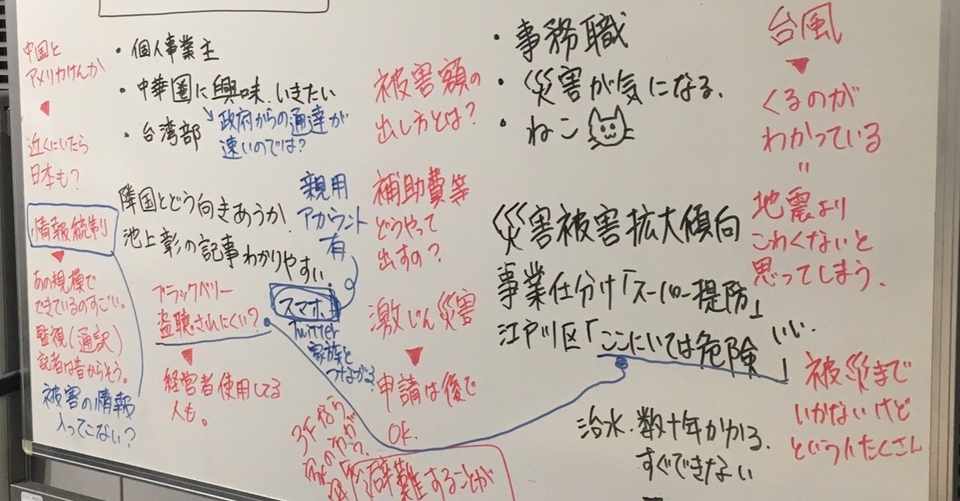 中国と
アメリカけんか
近くにいたら
日本も？
情報統制
あの規模で
できているのすごい。
監視(通訳)
記者は昔からそう。
被害の情報
入ってこない？
・個人事業主
・中華圏に興味、いきたい
・台湾部
政府からの通達が
速いのでは？
隣国とどう向きあうか、
池上彰の記事わかりやすい
ブラックベリー
盗聴されにくい？
経営者使用してる
人も。
親用
アカウント
有
スマホ、
Twitter
家族と
つながる
被害額の
出し方とは？
補助費等
どうやって
出すの？
激じん災害
申請は後で
OK.
3Fなら
避難することが
・事務職
・災害が気になる、
・ねこ
災害被害拡大傾向
事業仕分け「スーパー堤防」
江戸川区「ここにいては危険」
治水、数十年かかる、
すぐできない
台風
くるのが
わかっている
=
地震より
こわくないと
思ってしまう、
被災まで
いかないけど
という人たくさん